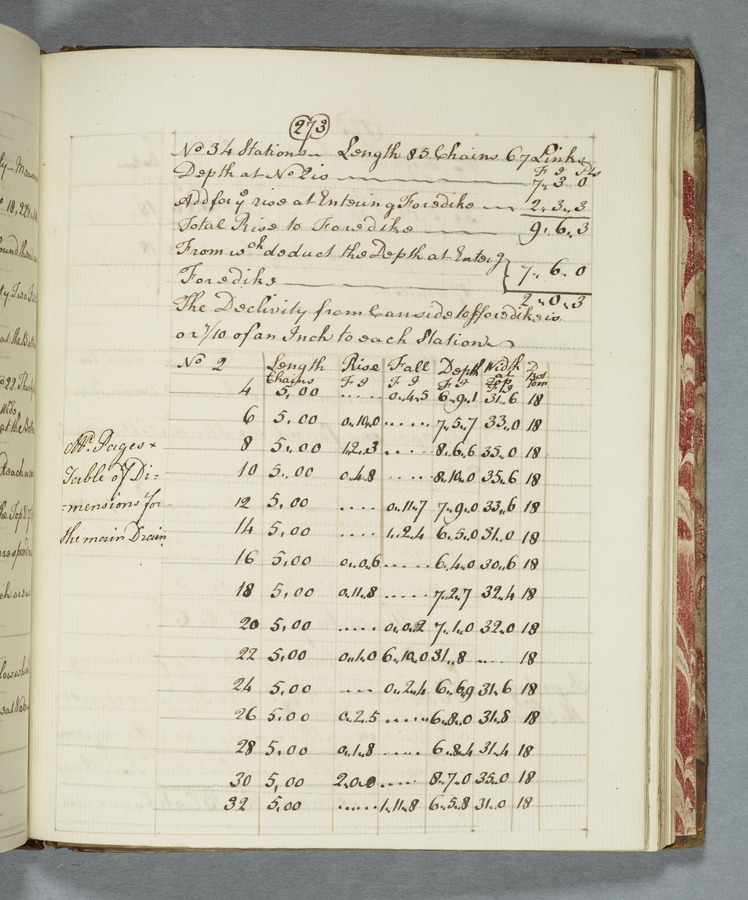 273
No 34 Stations Length 85 Chains 67 Links
F I Pts
Depth at No 2 is 7.. 3 0
Add for ye rise at Entering Foredike 2.. 3.. 3
Total Rise to Foredike 9.. 6.. 3
From wch deduct the Depth at Enterg
Foredike 7.. 6.. 0
2.. 0.. 3
The Declivity from Carrside to foredike is
or 7/10 of an Inch to each Station
No 2 Length Rise Fall Depth Width
Chains F I F I F I at Top Bot tom
4 5,00 ..... 0..4..5 6..9..1 31..6 18
6 5,00 0..10..0 ..... 7..5..7 33..0 18
Mr. Pages
8 5,00 1..2..3 ..... 8..6..6 35..0 18
Table of Di=
10 5,00 0..4..8 8..10..0 35..6 18
=mensions for
12 5,00 .... 0..11..7 7..9..0 33..6 18
the main Drain
14 5,00 .... 1..2..4 6..5..0 31..0 18
16 5,00 0..0..6 ..... 6..4..0 30..6 18
18 5,00 0..11..8 ..... 7..2..7 32..4 18
20 5,00 ..... 0..0..2 7..1..0 32..0 18
22 5,00 0..1..0 6..10..0 31..8 .... 18
24 5,00 .... 0..2..4 6..6..9 31..6 18
26 5,00 0..2..5 ..... 6..8..0 31..8 18
28 5,00 0..1..8 ..... 6..8..4 31..4 18
30 5,00 2..0..0 .... 8..7..0 35..0 18
32 5,00 ..... 1..11..8 6..5..8 31..0 18